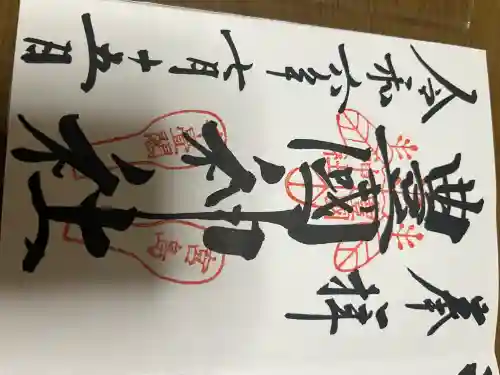 奉拝
豊國神社
令和六年七月十五日
宮島